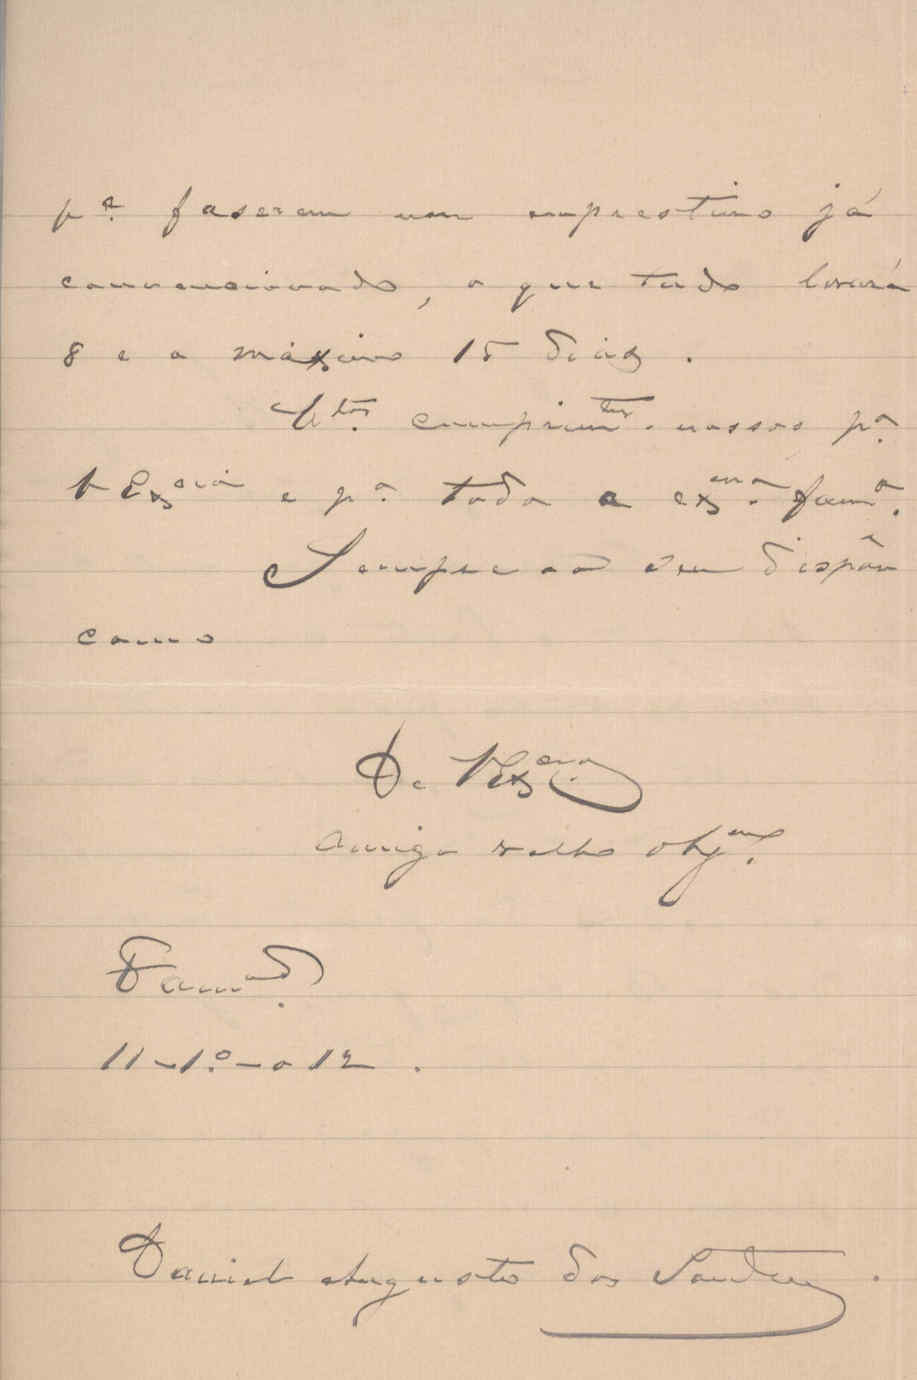 pª. faserem um emprestimo já
convencionado, o que tudo levará
8 e o maximo 15 dias.
Mtos. cumprimtos. nossos pª.
V Exciá e pª toda a exma. famª.
Sempre ao seu dispôr
como
De VExcia.
Amigo velho obgmo.
11-1º-912.
Daniel Augusto dos Santos.